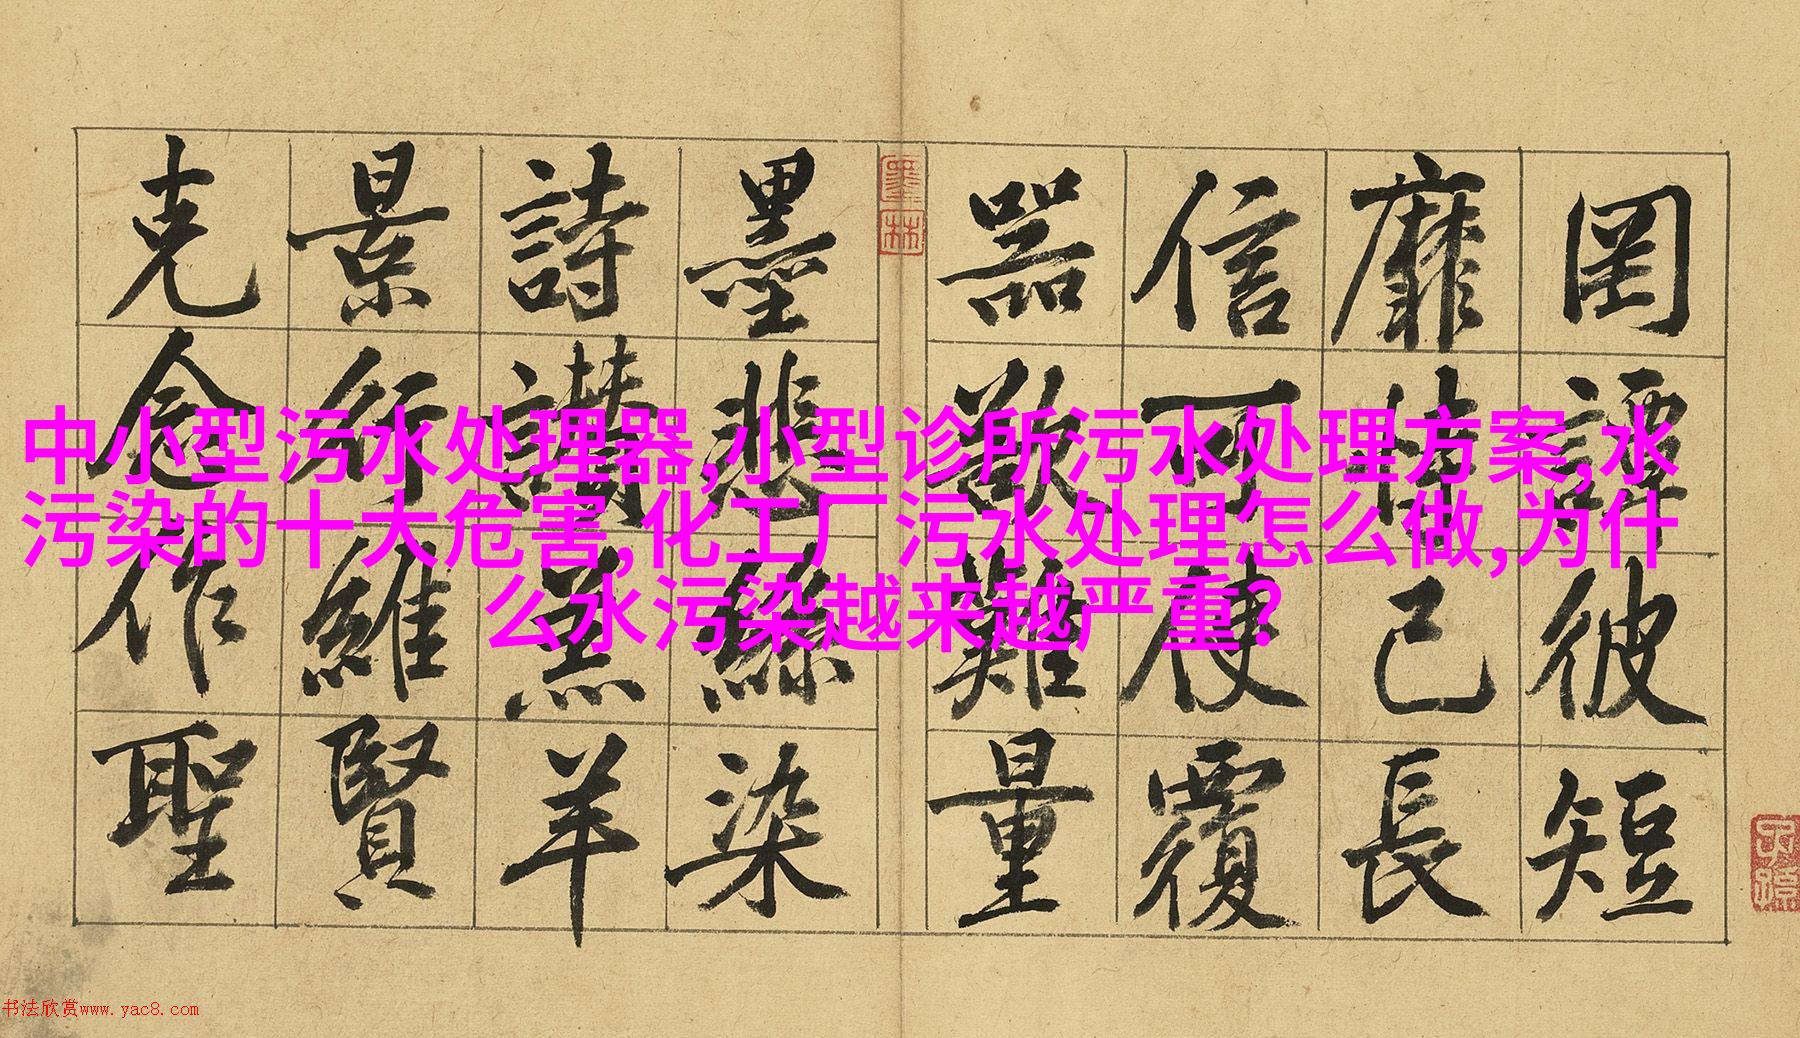 罔譚彼短
靡恃己長
信可使覆
器欲難量
墨悲絲染
詩讚羔羊
景行維賢
克念作聖
墨林
中小型污水处理器,小型诊所污水处理方案,水
污染的十大危害,化工厂污水处理怎么做,为什
么水污染越来越严重?
书法欣赏www.yac8.com